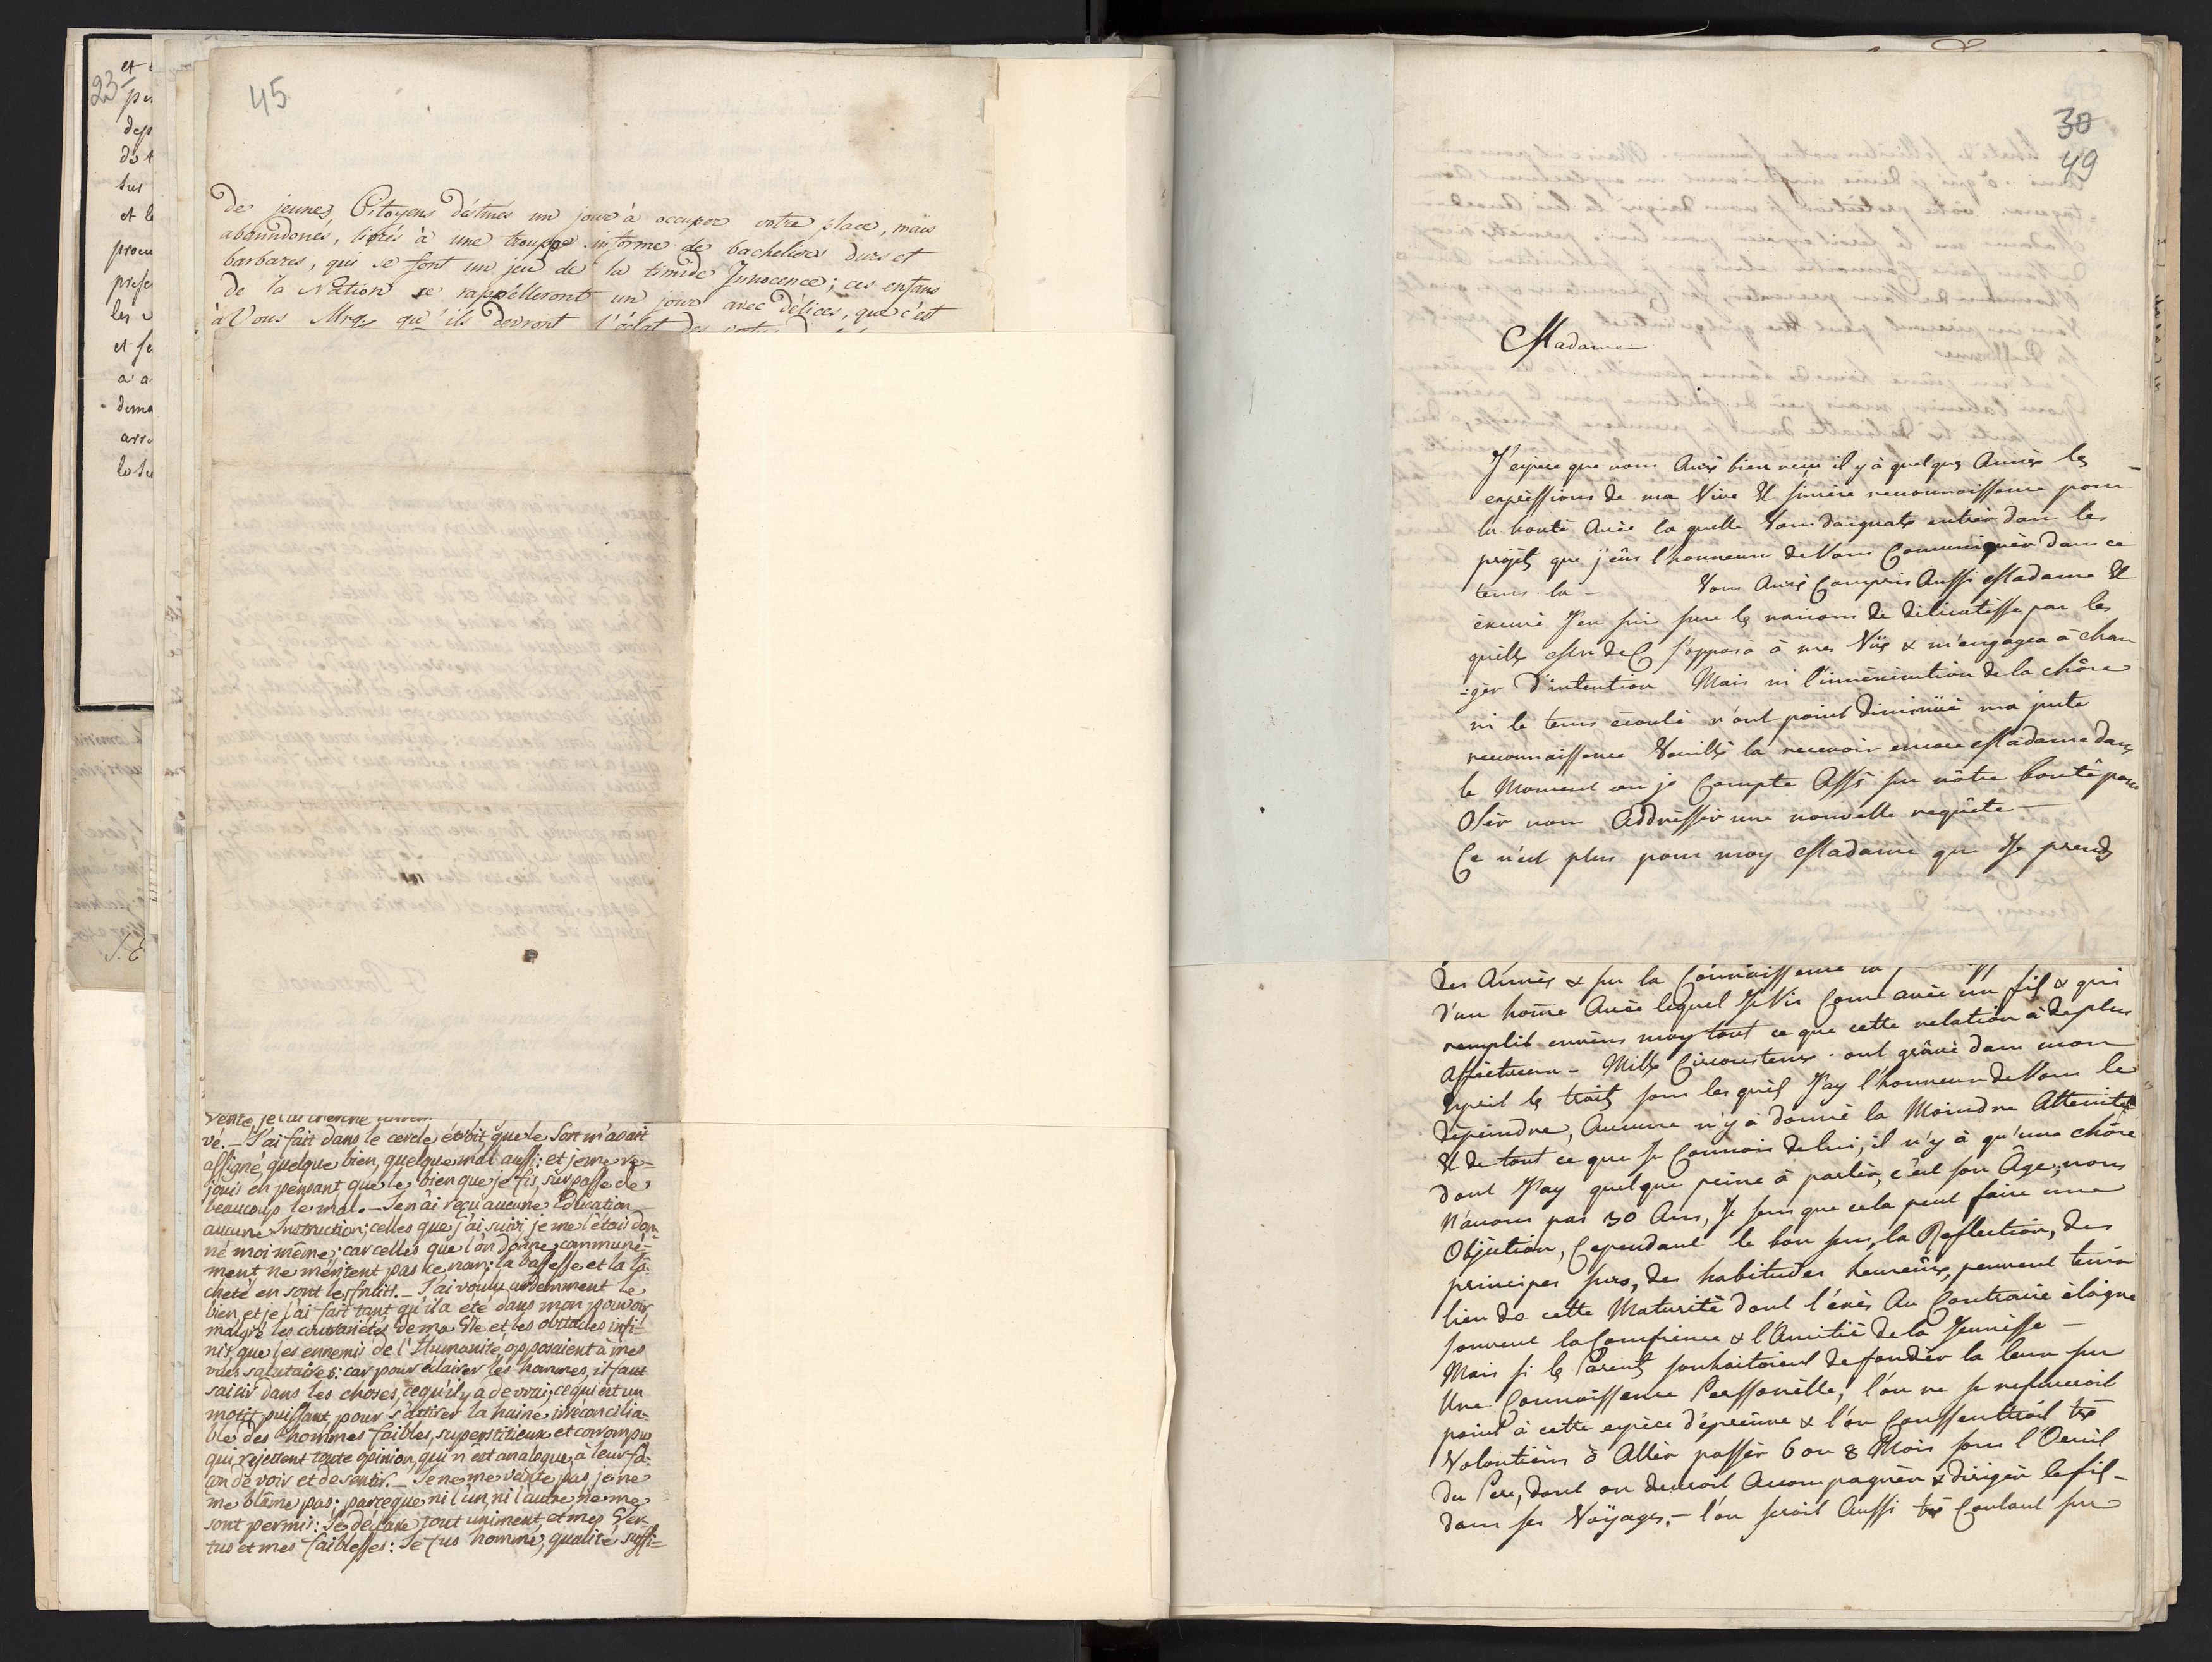 23
et
45
de jeunes Citoyens destinés un jour à occuper votre place, mais
abanndonés, livrés à une trouppe informe de bacheliers durs et
barbares, qui se font un jeu de la timide Innocence; ces enfans
de la Nation se rappelleront un jour avec délices, que c'est
à Vous qu'ils devront l'éclat des
vé. _ J'ai fait dans le cercle étroit que le Sort m'avait
assigné quelque bien, quelque mal aussi: et je me ré-
jouis en pensant que le bien que je fis, surpasse de
beaucoup le mal. _ Je n'ai reçu aucune Education
aucune Instruction; celles que j'ai suivi je me l'étais don-
né moi même; car celles que l'on donne communé-
ment ne méritent pas ce nom; la bassesse et la lâ-
cheté en sont les fruits. _ J'ai voulu ardemment le
bien, et je l'ai fait tant qu'il a été dans mon pouvoir
malgré les contrariétés de ma Vie et les obstacles infi-
nis, que les ennemis de l'Humanité, opposaient à mes
vues salutaires: car pour éclairer les hommes, il faut
saisir dans les choses, ce qu'il y a de vrai; ce qui est un
motif puissant, pour s'attirer la haine irréconcilia-
ble des hommes faibles, superstitieux et corrompus
qui rejettent toute opinion, qui n'est analogue à leur fa-
çon de voir et de sentir. _ Je ne me vante pas, je ne
me blâme pas; parceque ni l'un, ni l'autre ne me
sont permis: Je déclare tout uniment et mes Ver-
tus et mes faiblesses: Je fus homme, qualité suffi=
30
49
Madame
J'espere que vous Avés bien reçu il y à quelques Années les
expressions de ma Vive & sincère reconnoissence pour
la bonté Avec la quelle Vous daignate entrèr dans les
projèts que j'eûs l'honneur de Vous Comuniquèr dans ce
tems la – Vous Avés Compris Aussi Madame &
éxcusé J'en suis sure les raisons de délicatesse par les
quells Mr de C s'opposa à mes Vües & m'engagea à chan
=gèr d'intention Mais ni l'innéxécution de la chôse
ni le tems écoulé n'ont point diminüé ma juste
reconnoissence Veuillés la recevoir encore Madame dans
le Moment ou je Compte Assés sur vôtre bonté pour
Osèr vous Addrèssèr une nouvelle requête –
Ce n'est plus pour moy Madame que Je prends
des Années & sur la Connoissence
d'un home Avèc lequel Je Vis Come avèc un fils & qui
remplit envèrs moy tout ce que cette relation à de plus
Affèctueux – Mille Circonstences ont grâvé dans mon
esprit les traits sous les quels J'ay l'honneur de Vous le
dépeindre, Aucune n'y à donné la Moindre Atteinte
& de tout ce que Je Connois de lui, il n'y à qu'une chôse
dont J'ay quelque peine à parlèr, c'est son Âge, nous
N'avons pas 30 Ans, Je sens que cela peut faire une
Objèction, Cependant le bon sens, la Réflection, des
principes surs, des habitudes heureuses, peuvent tenir
lieu de cette Maturité dont l'éxès Au Contraire éloigne
souvent la Confience & l'Amitié de la Jeunesse –
Mais si les Parents souhaitoient de fondèr la leur sur
Une Connoissence Perssonèlle, l'on ne se refuseroit
point à cette espèce d'épreuve & l'on Conssentiroit très
Volontièrs à Allèr passèr 6 ou 8 Mois sous l'Oeuil
du Pere, dont on devroit Accompagnèr & dirigèr le fils –
dans ses Voÿages. – l'on seroit Aussi très Coulant sur